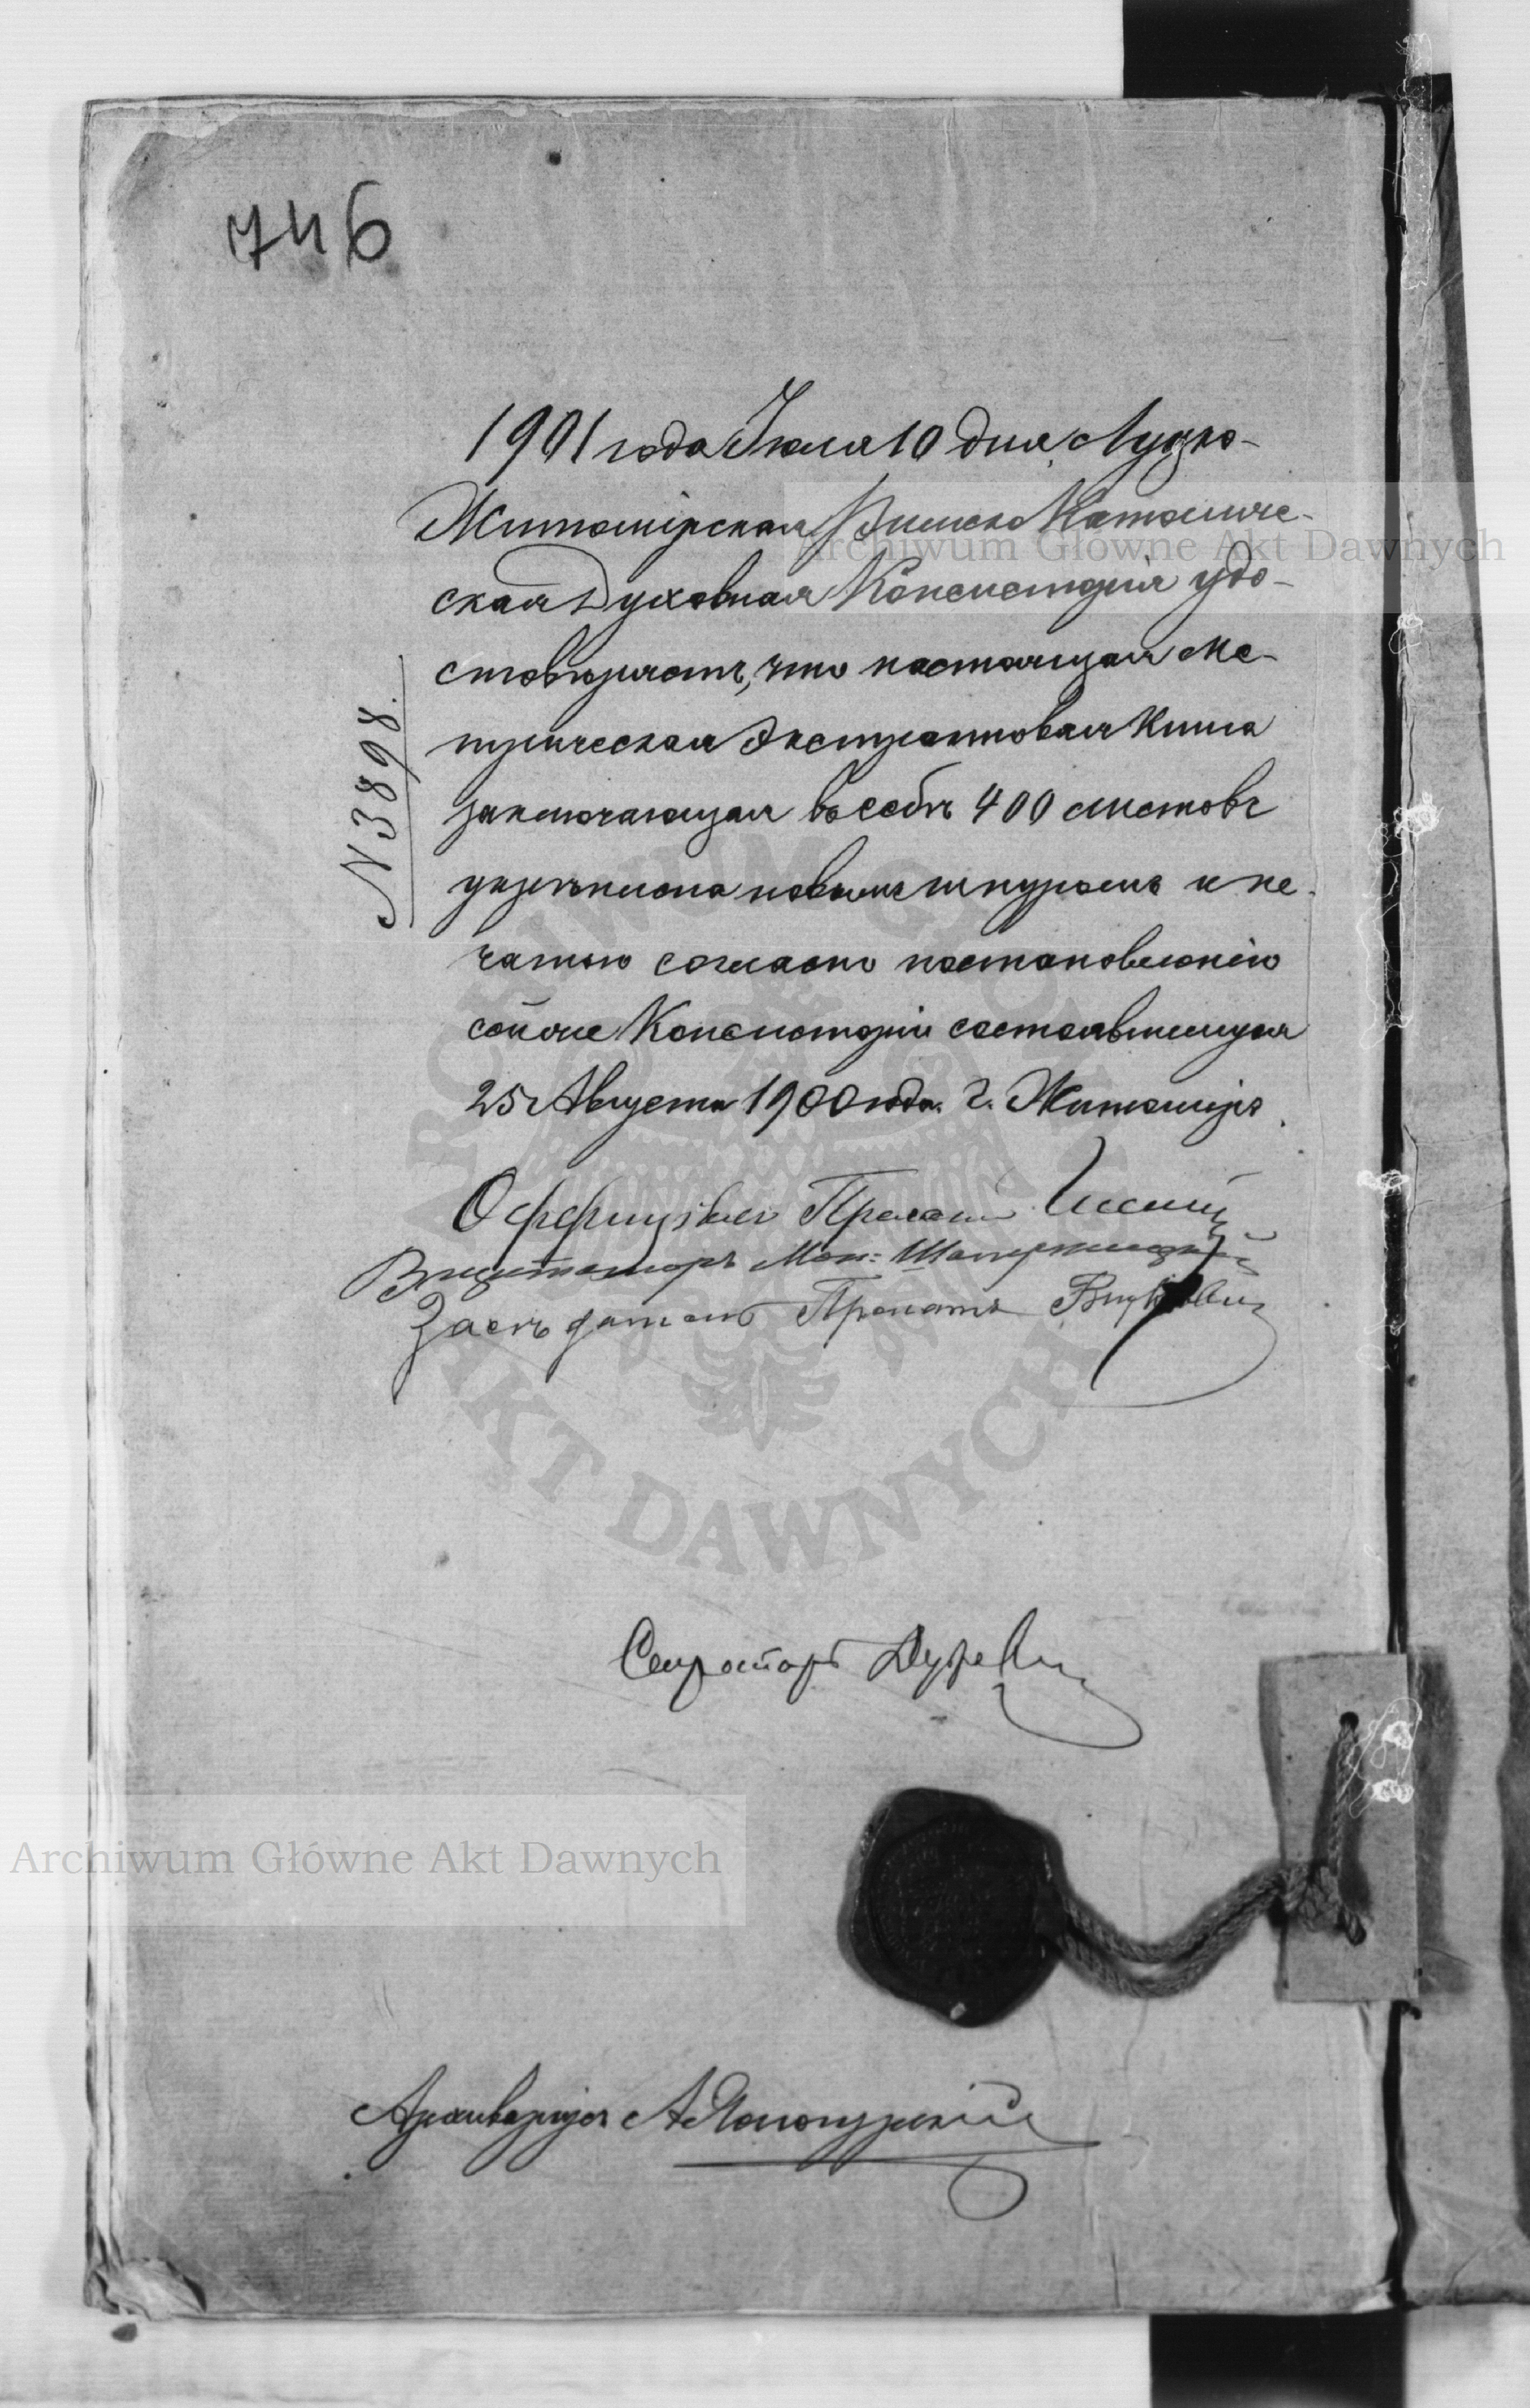 746
1901 года Іюля 10 дня, Луцко-
Житомірская Римско Католиче-
ская Духовная Консисторія удо-
стовѣряетъ, что настоящая Ме-
трическая Экстрактовая Книга
заключающая въ себѣ 400 листовъ
укрѣплена новымъ шнуромъ и пе-
чатью согласно постановленію
сей же Консисторіи состоявшемуся
25 Августа 1900 года. г. Житоміръ.
№ 3898.
Оффиціалъ Прелатъ
Визитаторъ Мон:
Засѣдатель Прелатъ
Секретарь
Archiwum Główne Akt Dawnych
Archiwum Główne Akt Dawnych
Архиваріусъ А
ARCHIWUM GŁÓWNE AKT DAWNYCH